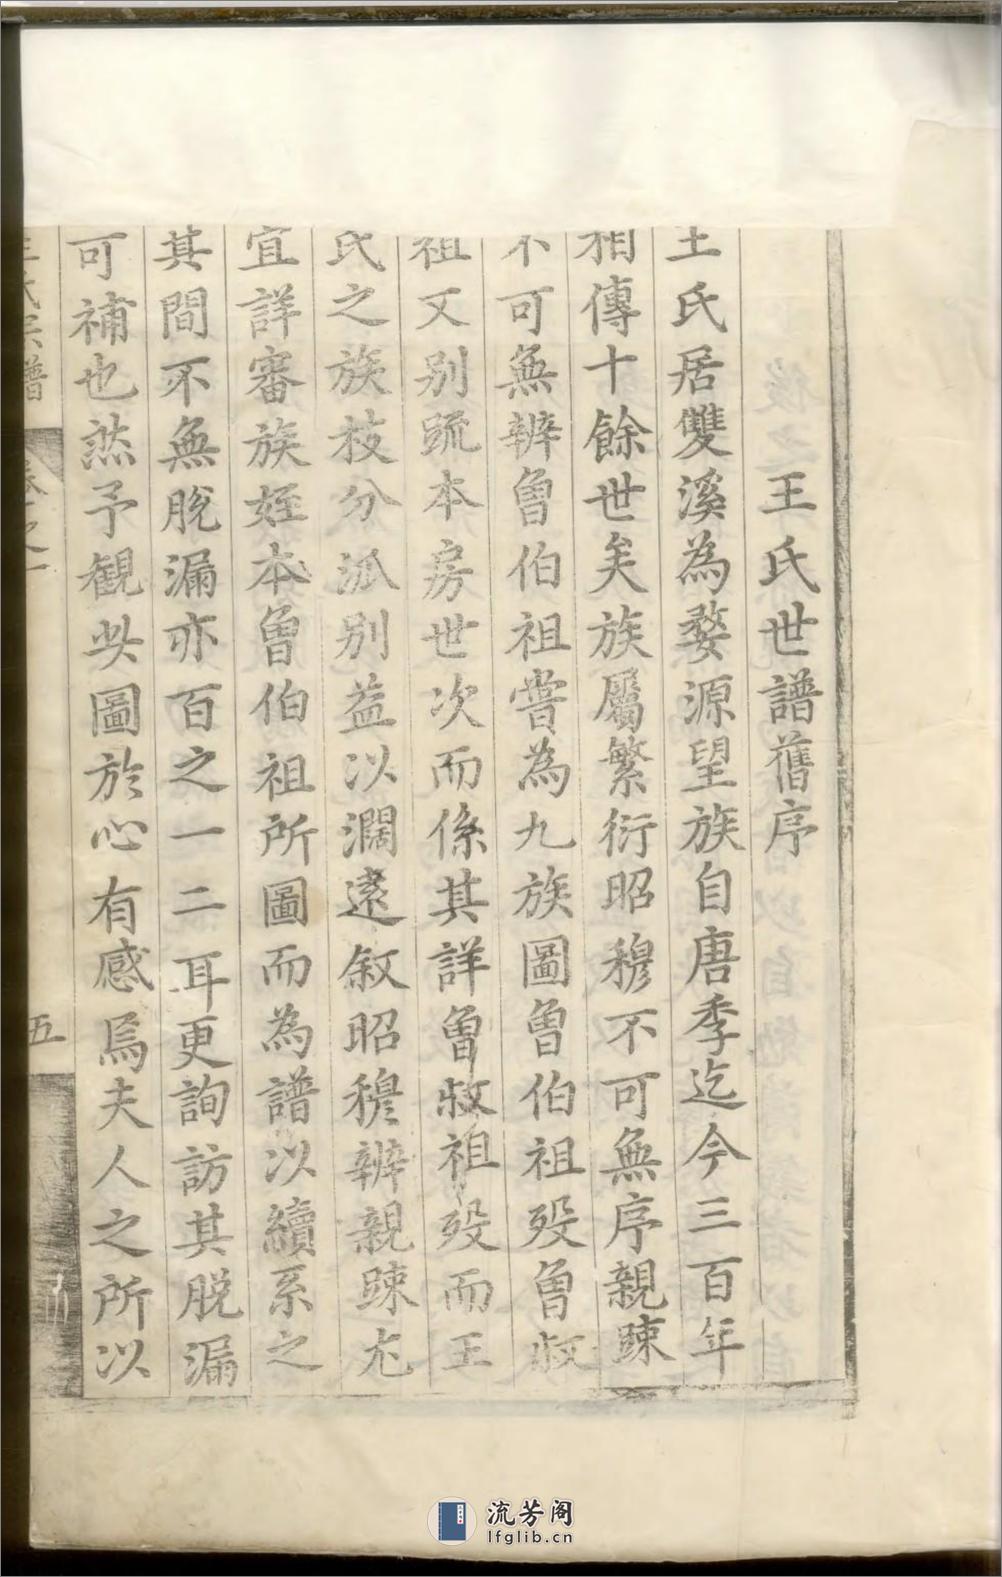 王氏世譜舊序
王氏居雙溪為婺源望族自唐季迄今三百年
相傳十餘世矣族屬繁衍昭穆不可無序親踈
不可無辨曾伯祖嘗為九族圖曾伯祖歿曾叔
祖又别䟽本房世次而係其詳曾叔祖歿而王
氏之族枝分派别益以濶遠叙昭穆辨親踈尤
宜詳審族姪本曾伯祖所圖而為譜以續系之
其間不無脫漏亦百之一二耳更詢訪其脫漏
可補也然予觀此圖於心有感焉夫人之所以
王氏宗譜
卷之一
五
流芳阁
lfglib.cn